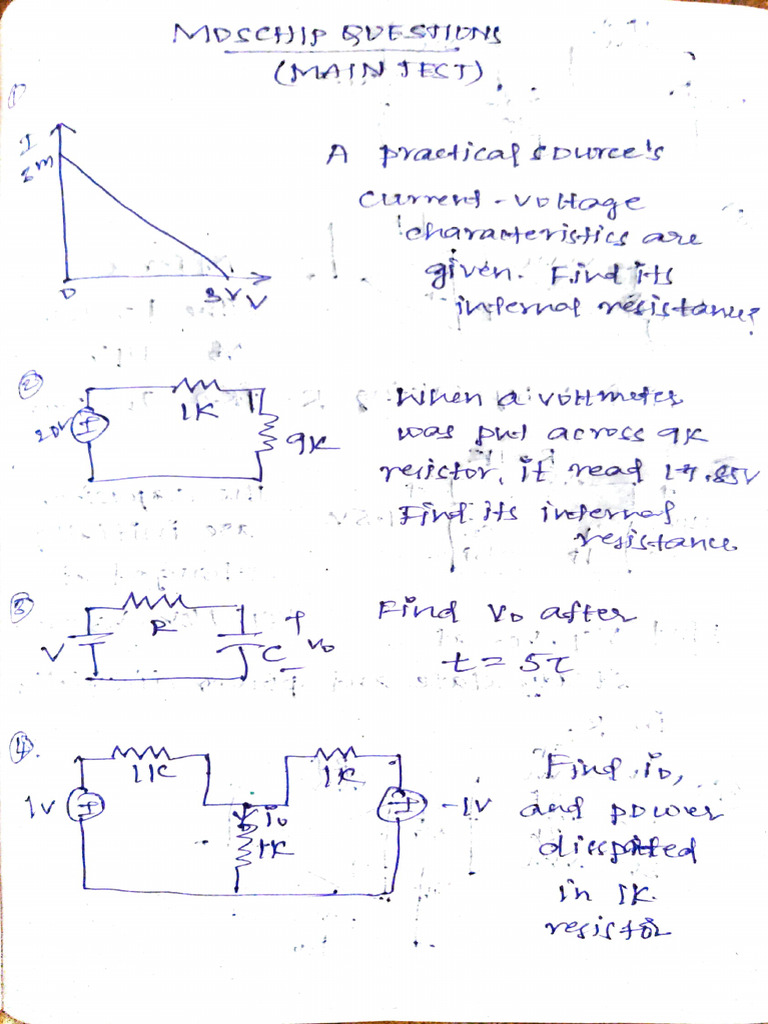 MOSCHIP QUESTIONS
(MAIN TEST)
①
I
A practical source's
current - voltage
characteristics are
given. Find its
internal resistance?
0 3V V
②
1K
20V
9K
When a voltmeter
was put across 9K
resistor, it read 17.85V
Find its internal
resistance
③
R
V
C
+
V₀
-
Find V₀ after
t = 5τ
④.
1K
1K
1V
i₀
1K
-1V
Find i₀,
and power
in 1K
resistor